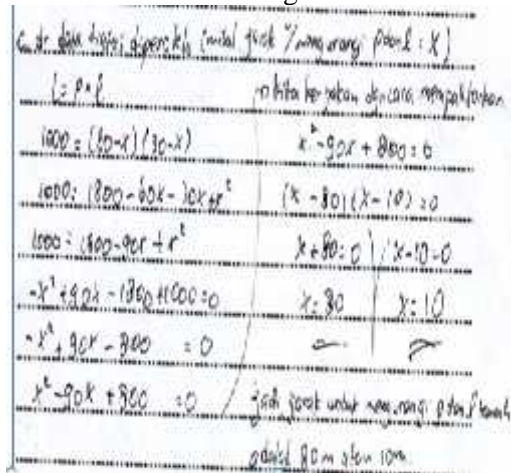 dan dipereleh (misal jarak yg mengurangi p dan l : x)
L = p × l
1000 = (60-x)(30-x)
1000 = 1800 - 60x - 30x + x²
1000 = 1800 - 90x + x²
-x² + 90x - 1800 + 1000 = 0
-x² + 90x - 800 = 0
x² - 90x + 800 = 0
kita kerjakan dgn cara memfaktorkan
x² - 90x + 800 = 0
(x - 80)(x - 10) = 0
x + 80 = 0 / x - 10 = 0
x = 80 x = 10
jadi jarak untuk mengurangi p dan l tanah
adalah 80 m atau 10 m